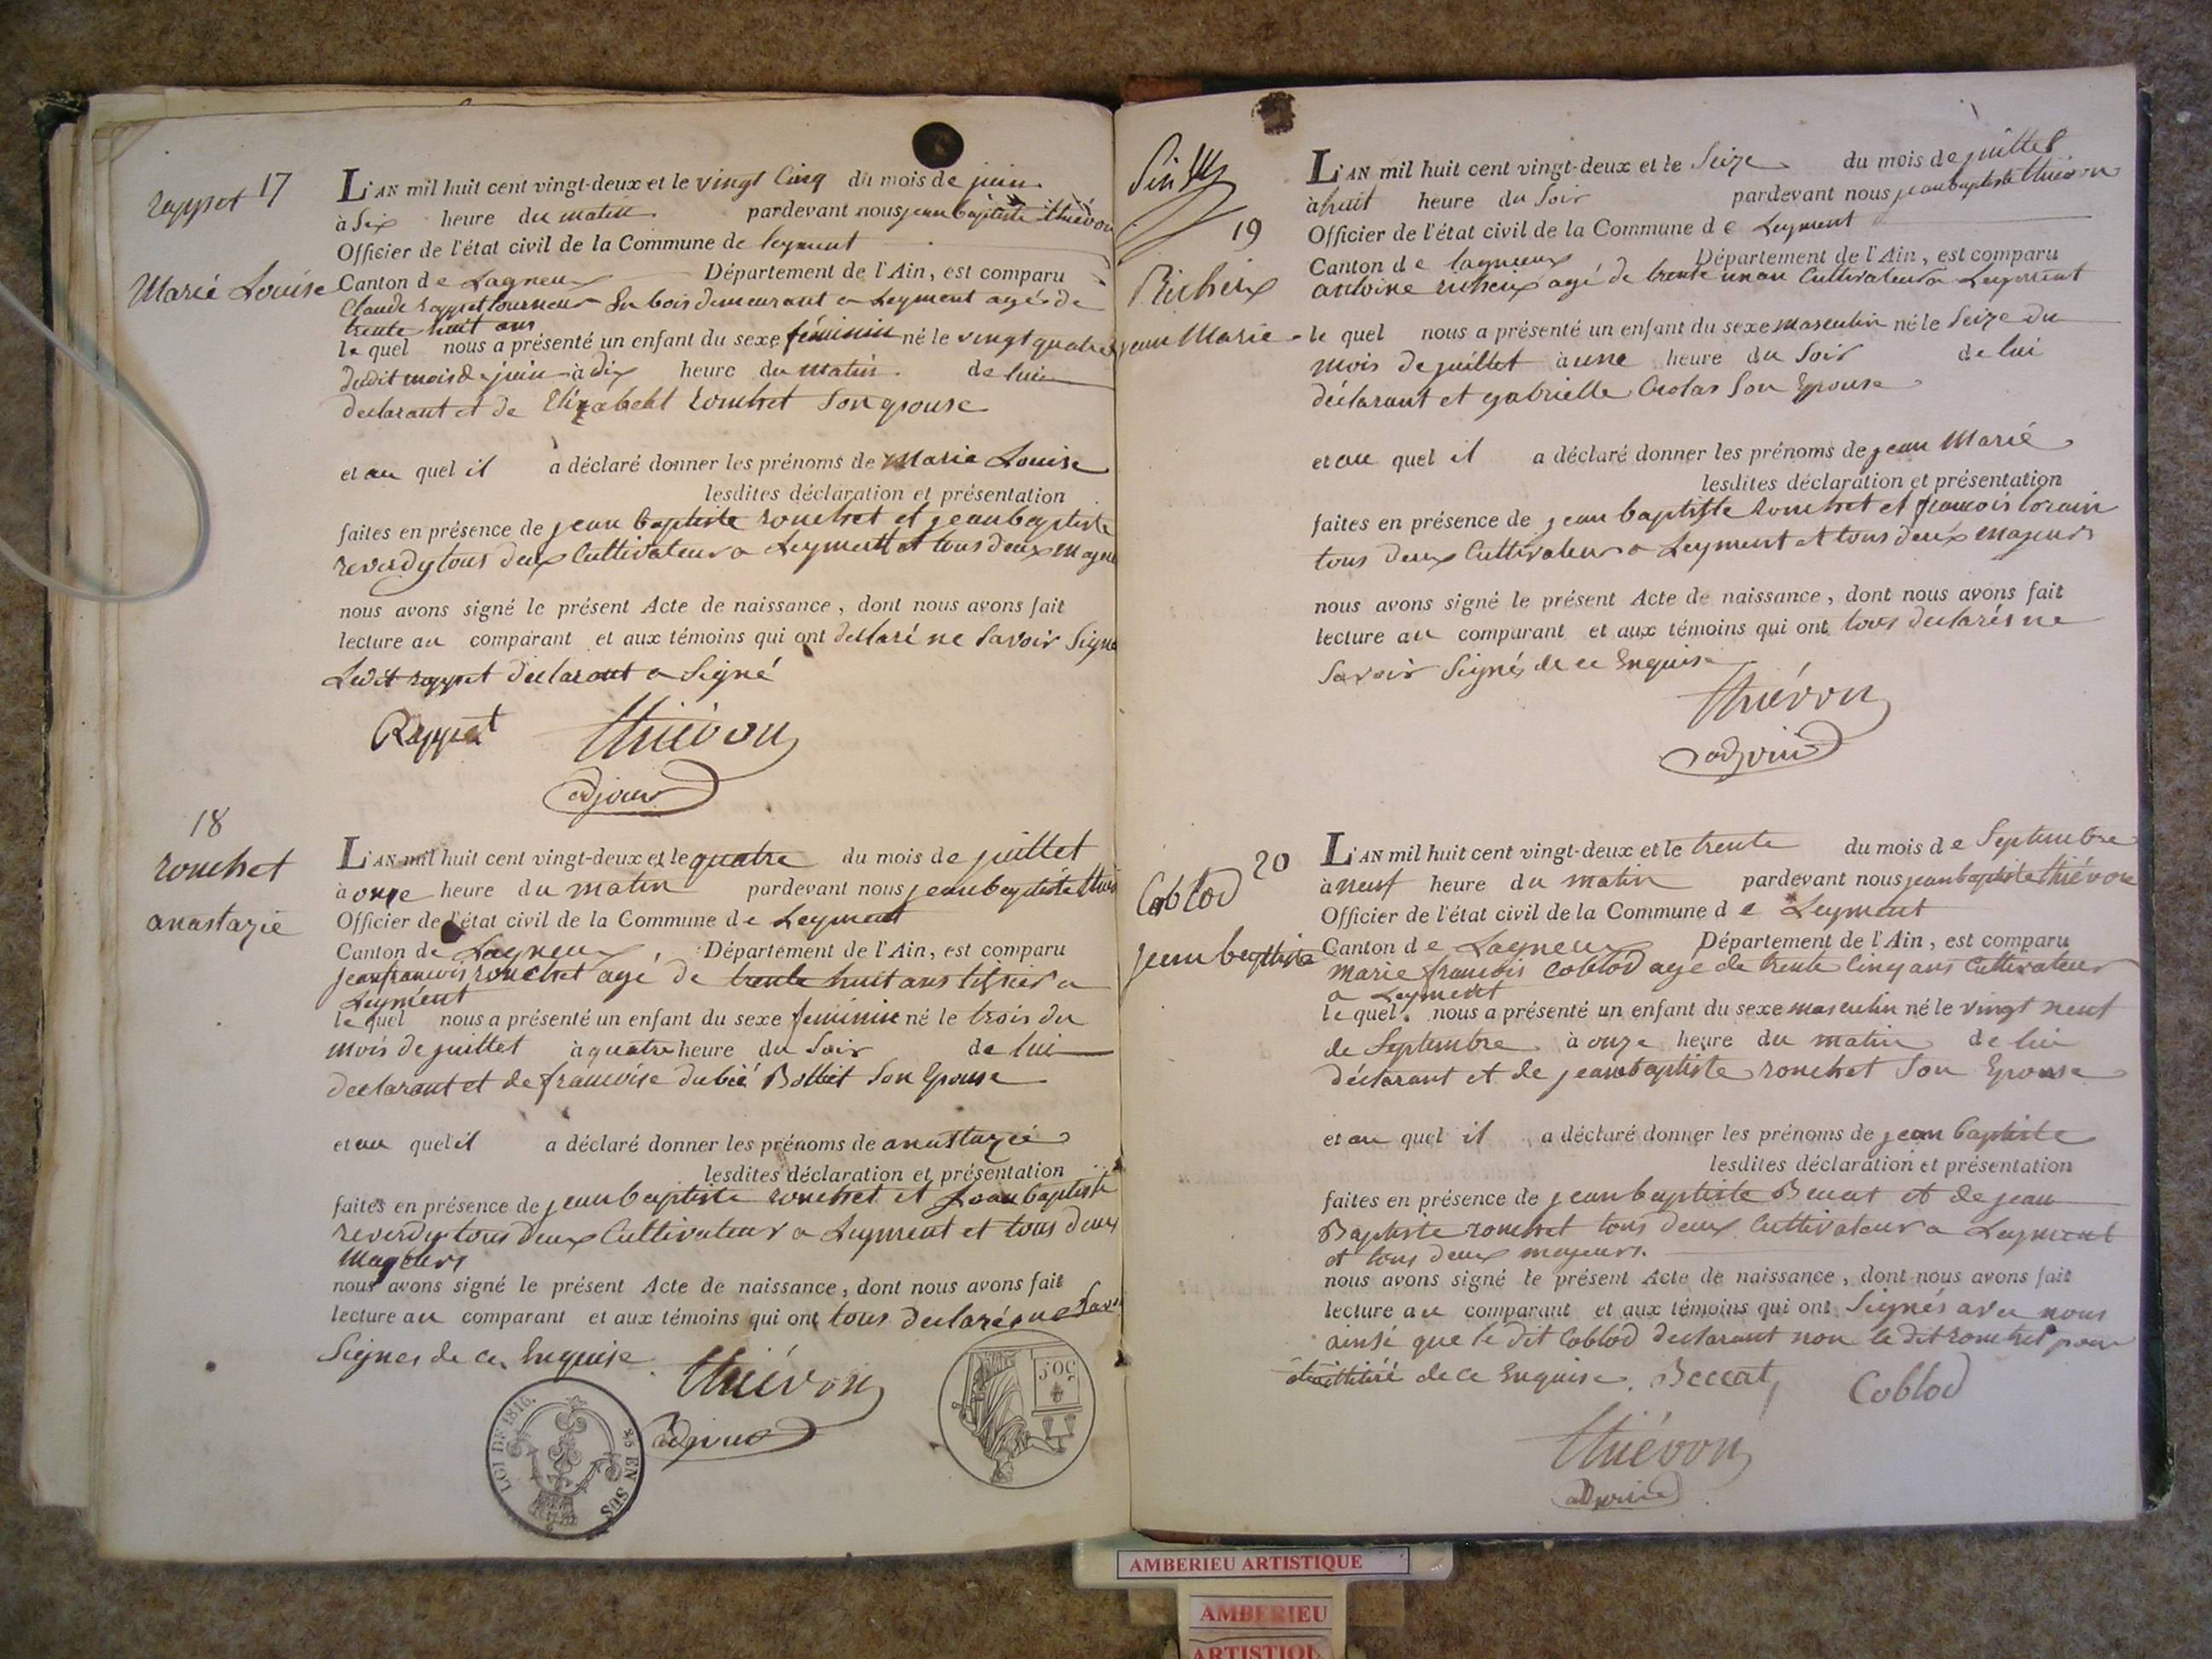 17
rappet
Marie Louise
L'AN mil huit cent vingt-deux et le vingt Cinq du mois de juin
à Six heure du matin pardevant nous jean baptiste thiévon
Officier de l'état civil de la Commune de leyment
Canton de Lagneux Département de l'Ain, est comparu
Claude rappet tourneur En bois demeurant a Leyment agé de
trente huit ans
le quel nous a présenté un enfant du sexe féminin né le vingt quatre
dudit mois de juin à dix heure du matin de lui
declarant et de Elizabeht ronchet Son Epouse
et au quel il a déclaré donner les prénoms de Marie Louise
lesdites déclaration et présentation
faites en présence de jean baptiste ronchet et jean baptiste
reverdy tous deux Cultivateur a Leyment et tous deux
nous avons signé le présent Acte de naissance, dont nous avons fait
lecture au comparant et aux témoins qui ont declaré ne Savoir Signe
Ledit rappet declarant a Signé
Rappet thiévon
adjoint
18
ronchet
anastazie
L'AN mil huit cent vingt-deux et le quatre du mois de juillet
à onze heure du matin pardevant nous jean baptiste
Officier de l'état civil de la Commune de Leyment
Canton de Lagneux, Département de l'Ain, est comparu
jean francois ronchet agé de trente huit ans a
Leyment
le quel nous a présenté un enfant du sexe feminin né le trois du
mois de juillet à quatre heure du Soir de lui
declarant et de françoise dubié Bolliet Son Epouse
et au quel il a déclaré donner les prénoms de anastazié
lesdites déclaration et présentation
faites en présence de jean baptiste ronchet et Jean baptiste
reverdy tous deux Cultivateur a Leyment et tous deux
majeurs
nous avons signé le présent Acte de naissance, dont nous avons fait
lecture au comparant et aux témoins qui ont tous declarés ne Savoir
Signer de ce Enquise thiévon
adjoint
LOI DE 1816.
EN SUS
50C
19
Richeix
jean Marie
L'AN mil huit cent vingt-deux et le Seize du mois de juillet
à huit heure du Soir pardevant nous jean baptiste thiévon
Officier de l'état civil de la Commune de Leyment
Canton de lagnieux Département de l'Ain, est comparu
antoine richeix agé de trente un an Cultivateur a Leyment
le quel nous a présenté un enfant du sexe masculin né le Seize du
mois de juillet à une heure du Soir de lui
déclarant et gabrielle Son Epouse
et au quel il a déclaré donner les prénoms de jean Marié
lesdites déclaration et présentation
faites en présence de jean baptiste ronchet et francois lorain
tous deux Cultivateur a Leyment et tous deux majeurs
nous avons signé le présent Acte de naissance, dont nous avons fait
lecture au comparant et aux témoins qui ont tous declarés ne
Savoir Signés de ce Enquise
thiévon
adjoint
20
Coblod
jean baptiste
L'AN mil huit cent vingt-deux et le trente du mois de Septembre
à neuf heure du matin pardevant nous jean baptiste thiévon
Officier de l'état civil de la Commune de Leyment
Canton de Lagneux Département de l'Ain, est comparu
marie francois Coblod agé de trente Cinq ans Cultivateur
a Leyment
le quel nous a présenté un enfant du sexe masculin né le vingt neuf
de Septembre à onze heure du matin de lui
déclarant et de jean baptiste ronchet Son Epouse
et au quel il a déclaré donner les prénoms de jean baptiste
lesdites déclaration et présentation
faites en présence de jean baptiste Becat et de jean
Baptiste ronchet tous deux Cultivateur a Leyment
et tous deux majeurs.
nous avons signé le présent Acte de naissance, dont nous avons fait
lecture au comparant et aux témoins qui ont Signés avec nous
ainsi que le dit Coblod declarant non le dit ronchet pour
de ce Enquise. Beccat Coblod
thiévon
adjoint
AMBERIEU ARTISTIQUE
AMBERIEU
ARTISTIQU